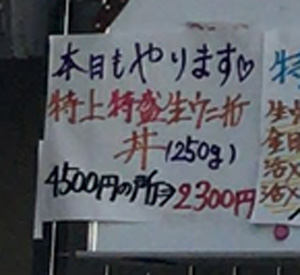 本日もやります♡
特上特盛生ウニ折
丼(250g)
4500円の所⇒2300円
特
生
金目
活〆
活〆